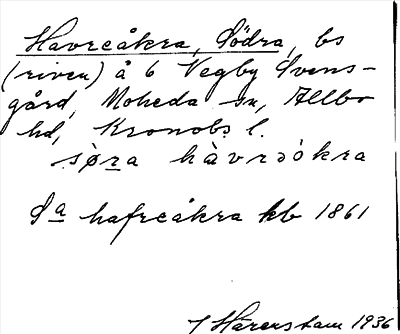 Havreåkra, Södra, bs
(riven) å 6 Vegby Svens-
gård, Moheda sn, Allbo
hd, Kronobs l.
sö̀ra hàvrəòkra
Sa hafreåkra kb 1861
J Härenstam 1936